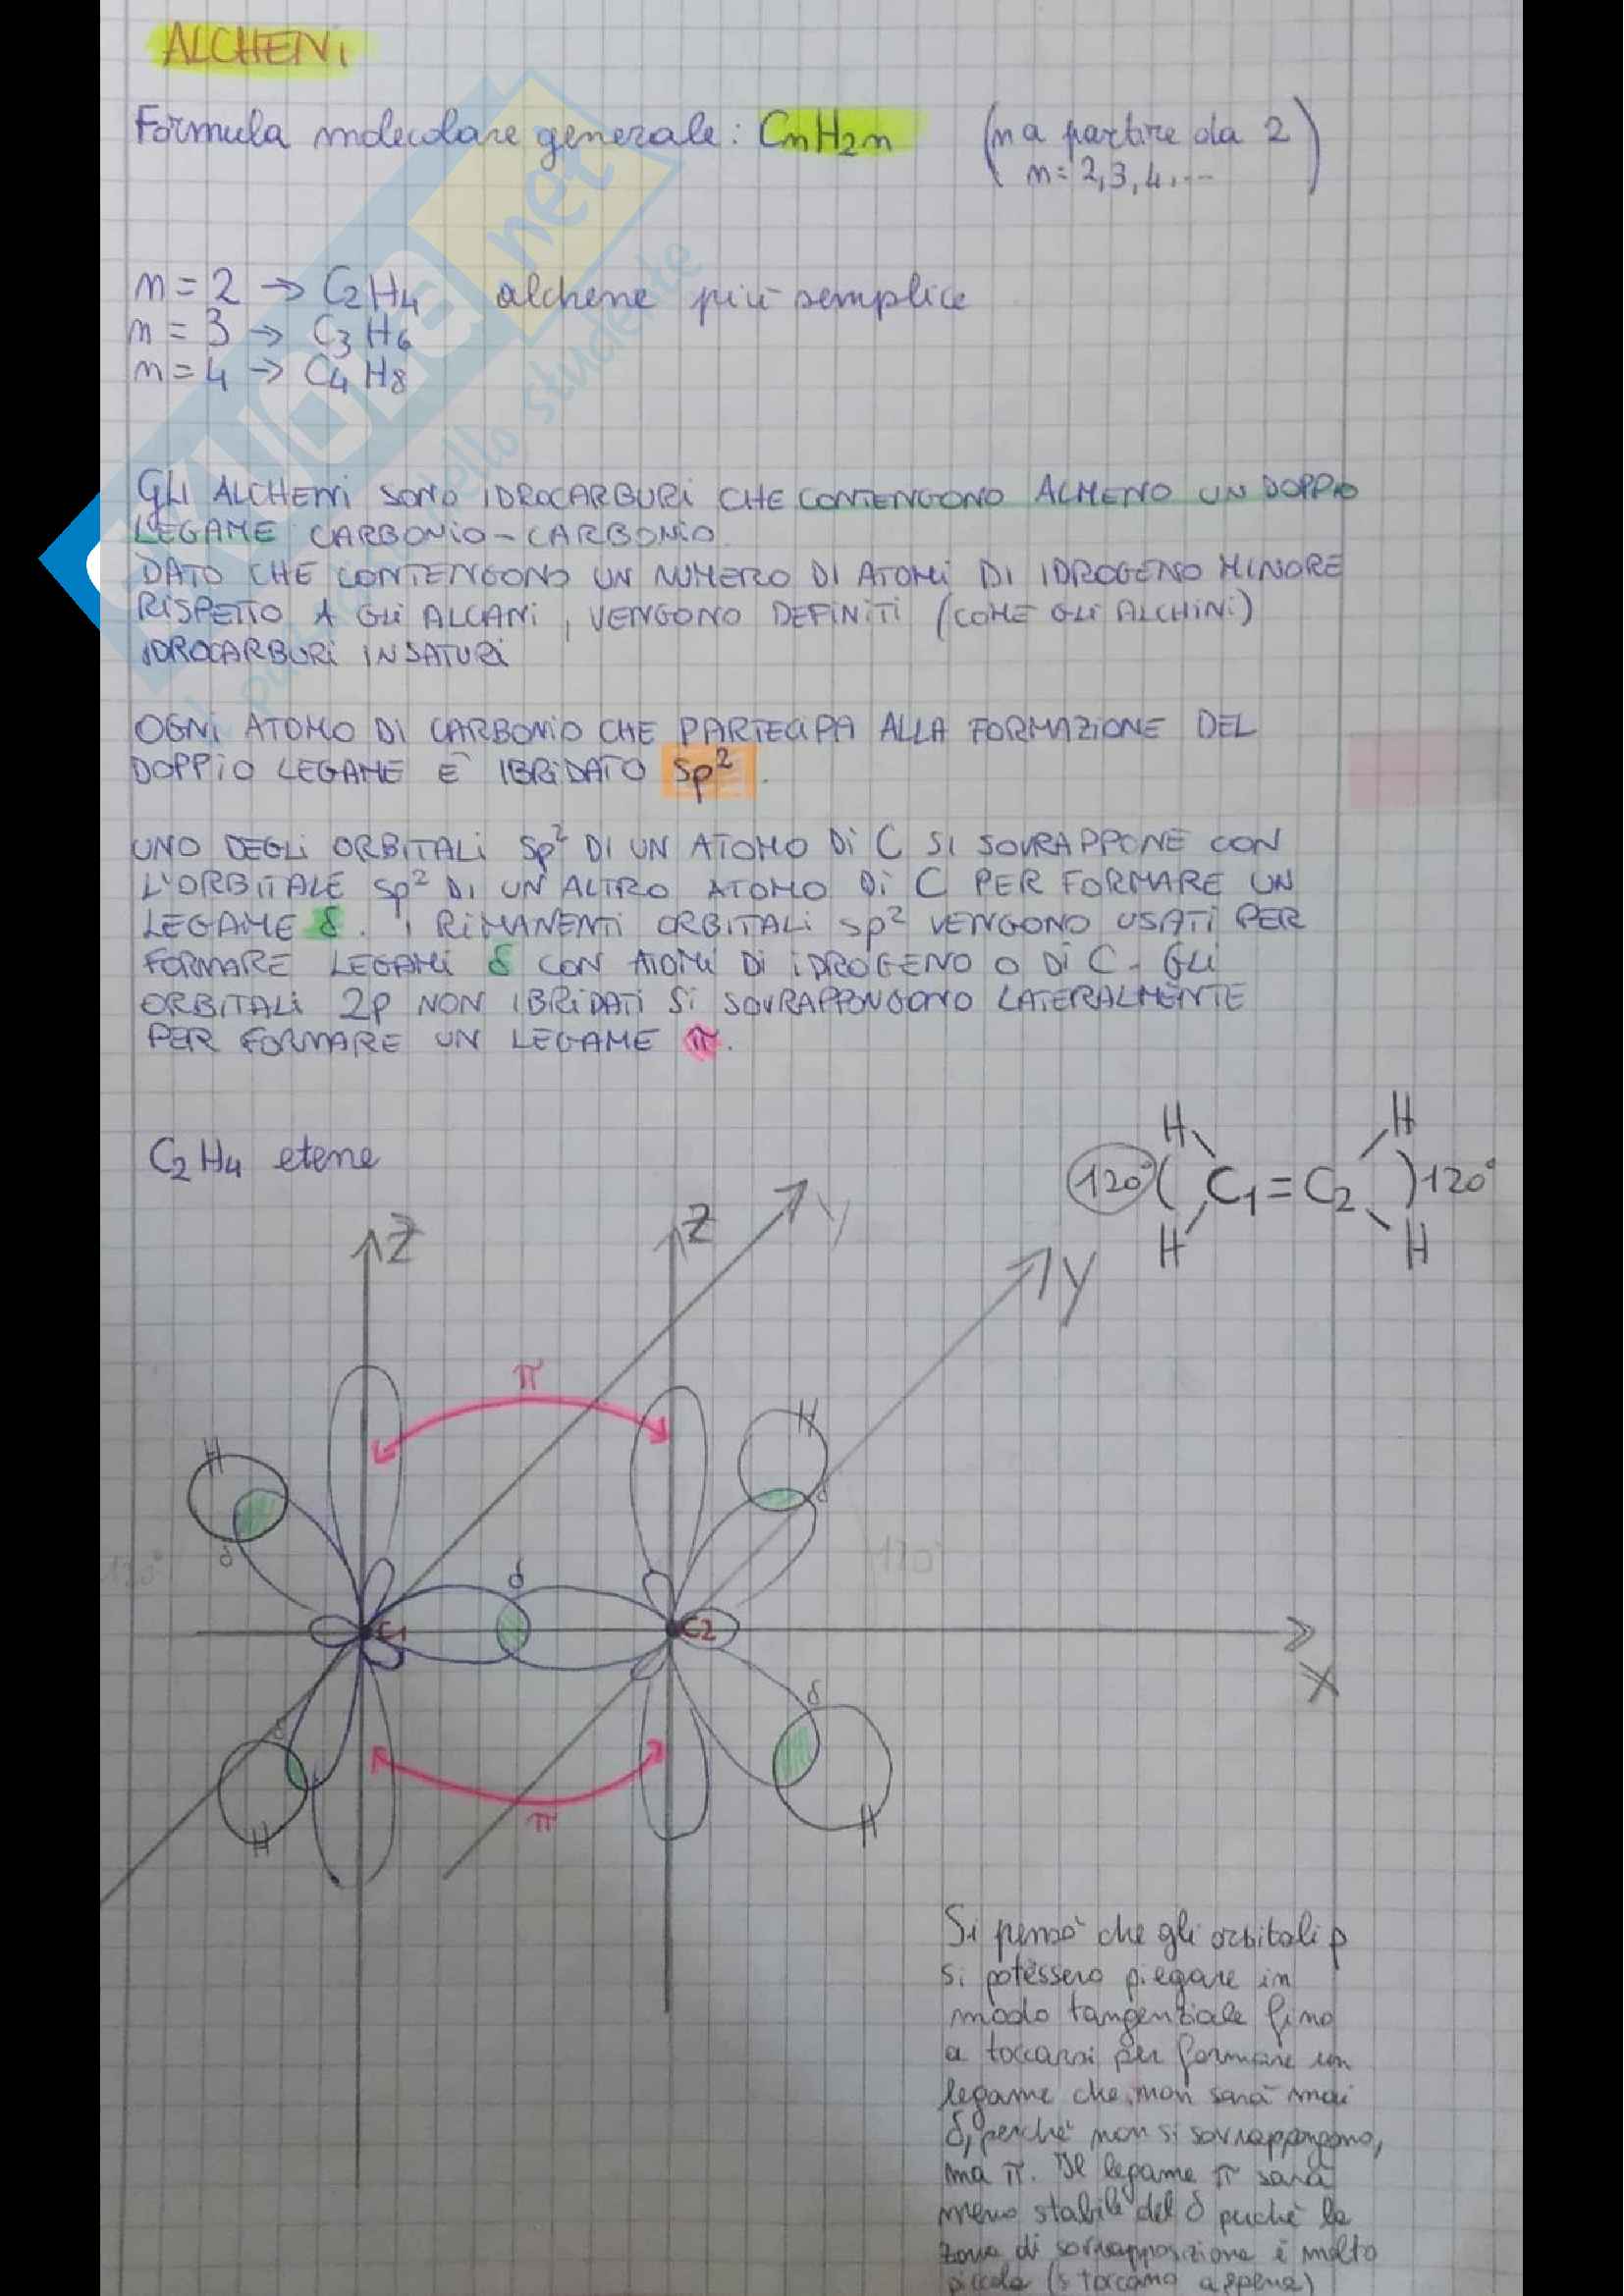 ALCHENI
Formula molecolare generale: CnH2n (n a partire da 2
n=2,3,4,...)
n=2 → C2H4 alchene più semplice
n=3 → C3H6
n=4 → C4H8
GLI ALCHENI SONO IDROCARBURI CHE CONTENGONO ALMENO UN DOPPIO
LEGAME CARBONIO-CARBONIO.
DATO CHE CONTENGONO UN NUMERO DI ATOMI DI IDROGENO MINORE
RISPETTO A GLI ALCANI, VENGONO DEFINITI (COME GLI ALCHINI)
IDROCARBURI INSATURI
OGNI ATOMO DI CARBONIO CHE PARTECIPA ALLA FORMAZIONE DEL
DOPPIO LEGAME È IBRIDATO sp².
UNO DEGLI ORBITALI sp² DI UN ATOMO DI C SI SOVRAPPONE CON
L'ORBITALE sp² DI UN ALTRO ATOMO DI C PER FORMARE UN
LEGAME δ. I RIMANENTI ORBITALI sp² VENGONO USATI PER
FORMARE LEGAMI δ CON ATOMI DI IDROGENO O DI C. GLI
ORBITALI 2p NON IBRIDATI SI SOVRAPPONGONO LATERALMENTE
PER FORMARE UN LEGAME π.
C2H4 etene
H H
120° ( C1=C2 ) 120°
H H
Z Z Y
Y
π
H H
δ δ
120° 120°
δ
C1 C2
X
δ δ
π
H H
Si pensò che gli orbitali p
si potessero piegare in
modo tangenziale fino
a toccarsi per formare un
legame che non sarà mai
δ, perché non si sovrappongono,
ma π. Il legame π sarà
meno stabile del δ perché la
zona di sovrapposizione è molto
piccola (si toccano appena)
skuola.net
il portale dello studente